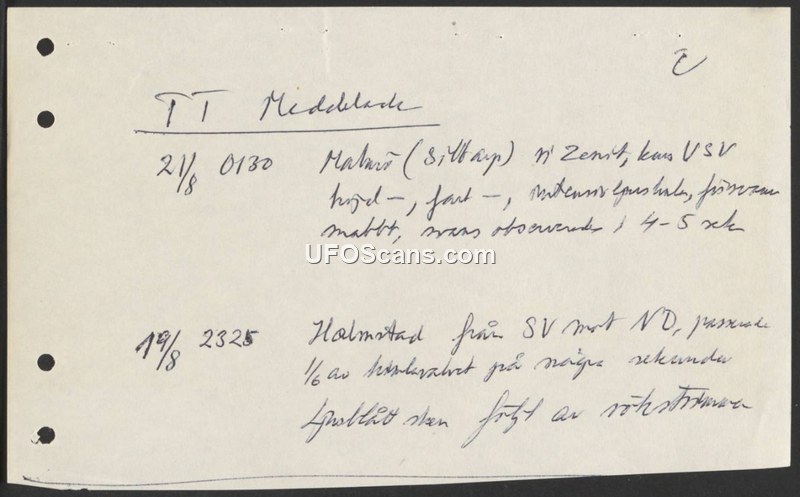 TT Meddelade
21/8 0130 (Siltarp) i Zenit, kurs VSV
höjd –, fart –, intensiv försvann
snabbt, svans observerades i 4–5 sek
UFOScans.com
19/8 2325 Halmstad från SV mot NO, passerade
1/6 av himlavalvet på några sekunder
Ljusblått sken följt av rökstrimma